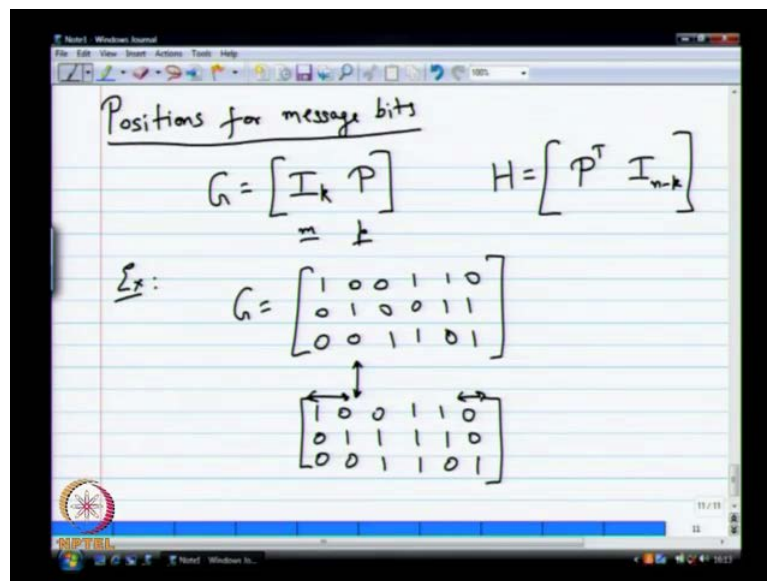 Note1 - Windows Journal
File Edit View Insert Actions Tools Help
100%
Positions for message bits
G = [ I_k P ] H = [ P^T I_{n-k} ]
m p
Ex:
G = [ 1 0 0 1 1 0
0 1 0 0 1 1
0 0 1 1 0 1 ]
[ 1 0 0 1 1 0
0 1 1 1 1 0
0 0 1 1 0 1 ]
11 / 11
11
NPTEL
Note1 - Windows Jo...
16:13